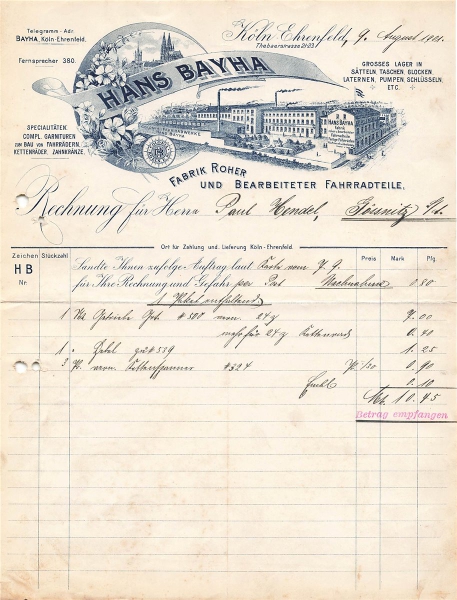 Telegramm-Adr.
BAYHA, Köln-Ehrenfeld.
Fernsprecher 380.
Köln Ehrenfeld, 9. August 1901.
Thebaerstrasse 21-23.
HANS BAYHA
GROSSES LAGER IN
SÄTTELN, TASCHEN, GLOCKEN,
LATERNEN, PUMPEN, SCHLÜSSELN,
ETC.
SPECIALITÄTEN:
COMPL. GARNITUREN
ZUM BAU VON FAHRRÄDERN,
KETTENRÄDER, ZAHNKRÄNZE.
HANS BAYHA
FABRIK ROHER
UND BEARBEITETER FAHRRADTEILE,
Rechnung für Herrn Paul Hendel, Gössnitz S/A.
Ort für Zahlung und Lieferung Köln-Ehrenfeld.
Zeichen Stückzahl Preis Mark Pfg.
H B Sandte Ihnen zufolge Auftrag laut Karte vom 7. 9.
Nr. für Ihre Rechnung und Gefahr per Post Nachnahme 0.80
1 Paket enthaltend
1 #500 24 7.00
mehr für 24 0.40
1 539 1.25
3 #324 /30 0.90
0.10
Mk. 10.45
Betrag empfangen